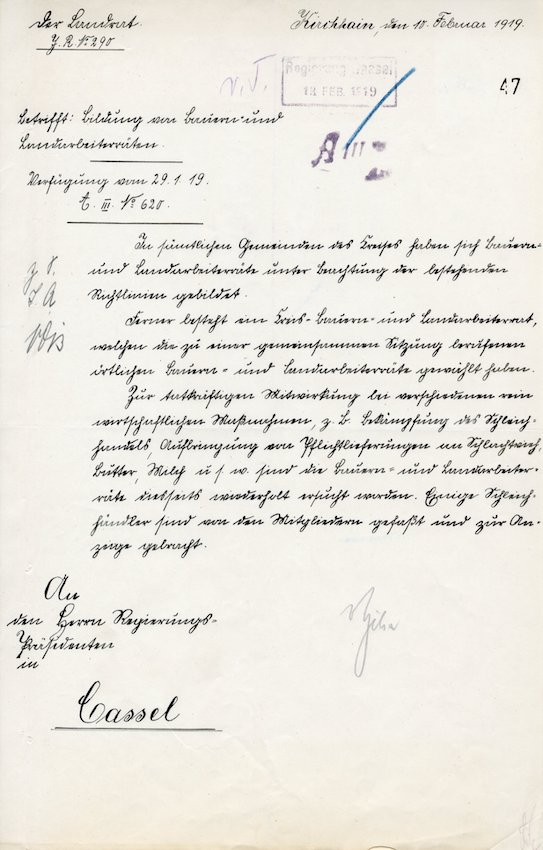 Der Landrat.
J. R. No 290
Kirchhain, den 10. Februar 1919.
Regierung Cassel
12. FEB. 1919
47
A III
Betrifft: Bildung von Bauern- und
Landarbeiterräten.
Verfügung vom 29.1.19.
A. III. No 620.
In sämtlichen Gemeinden des Kreises haben sich Bauern-
und Landarbeiterräte unter Beachtung der bestehenden
Richtlinien gebildet.
Ferner besteht ein Kreis-Bauern- und Landarbeiterrat,
welchen die zu einer gemeinsammen Sitzung berufenen
örtlichen Bauern- und Landarbeiterräte gewählt haben.
Zur tatkräftigen Mitwirkung bei verschiedenen rein
wirtschaftlichen Maßnahmen, z. B. Bekämpfung des Schleich-
handels, Aufbringung von Pflichtlieferungen an Schlachtvieh,
Butter, Milch u s w. sind die Bauern- und Landarbeiter-
räte diesseits wiederholt ersucht worden. Einige Schleich-
händler sind von den Mitgliedern gefaßt und zur An-
zeige gebracht.
An
den Herrn Regierungs-
Präsidenten
in
Cassel